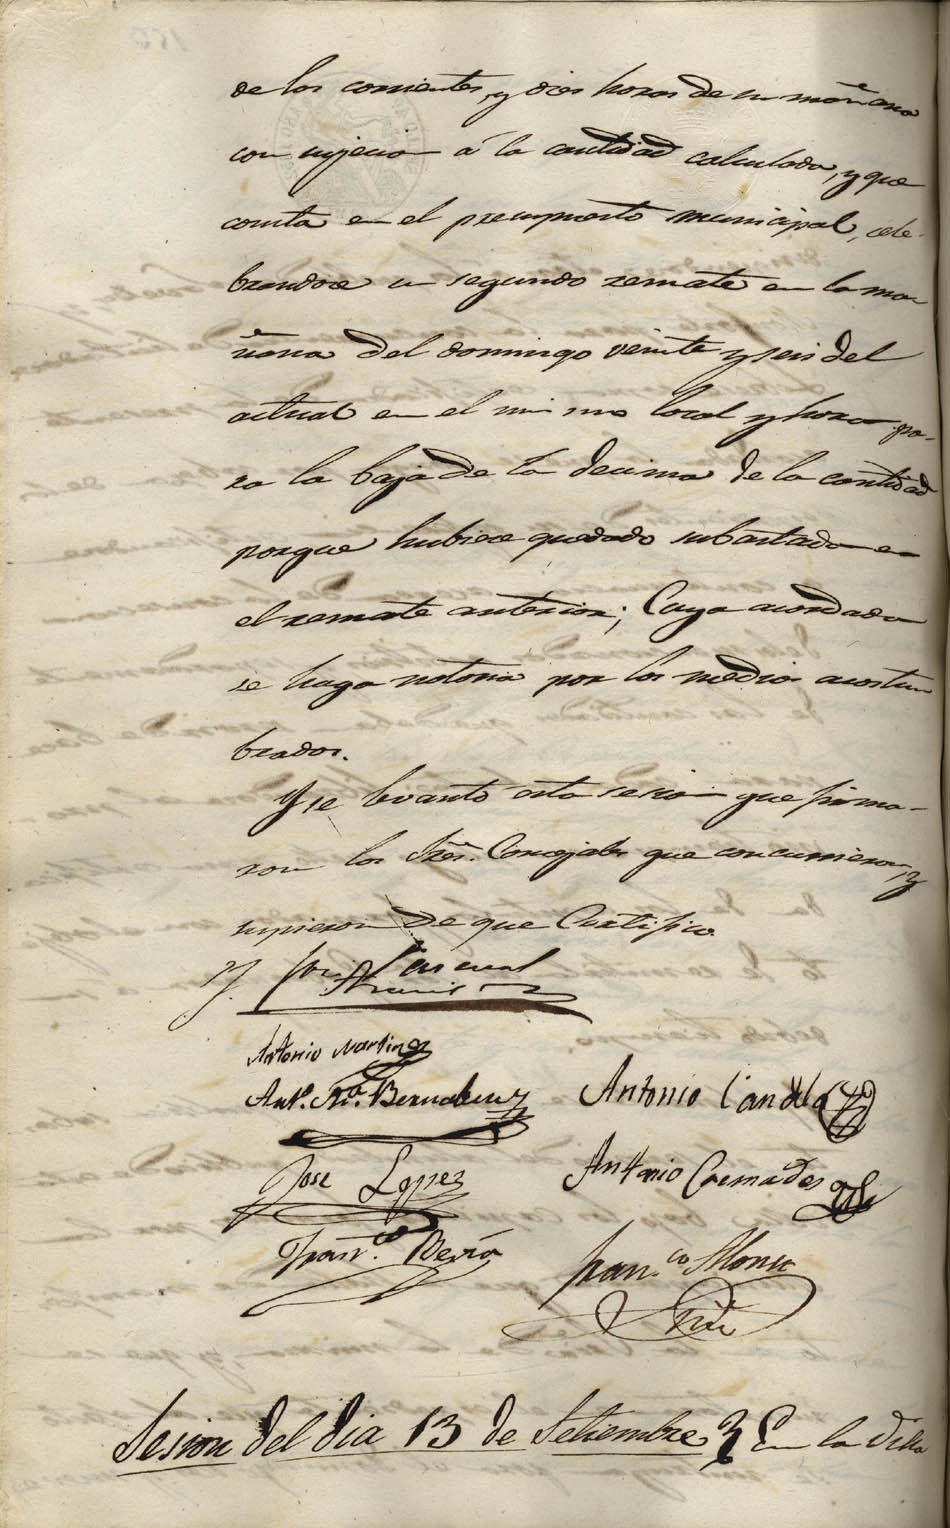 de los corrientes, y dies horas de su mañana
con sujecion á la cantidad calculada, y que
consta en el presupuesto municipal, cele-
brandose un segundo remate en la ma-
ñana del domingo veinte y seis del
actual en el mismo local y hora pa-
ra la baja de la decima de la cantidad
porque hubiese quedado subastado en
el remate anterior; Cuyo acordado
se haga notorio por los medios acostum
brados.
Y se levantó esta sesion que firma-
ron los Sres. Concejales que concurrieron, y
supieron de que Certifico.
José Pascual
Antonio Martinez
Anto. Ma. Bernabeu
Antonio Candela
Jose Lopez
Antonio Cremades
Franco.
Franco. Alonso
Sesion del dia 13 de Setiembre En la Villa